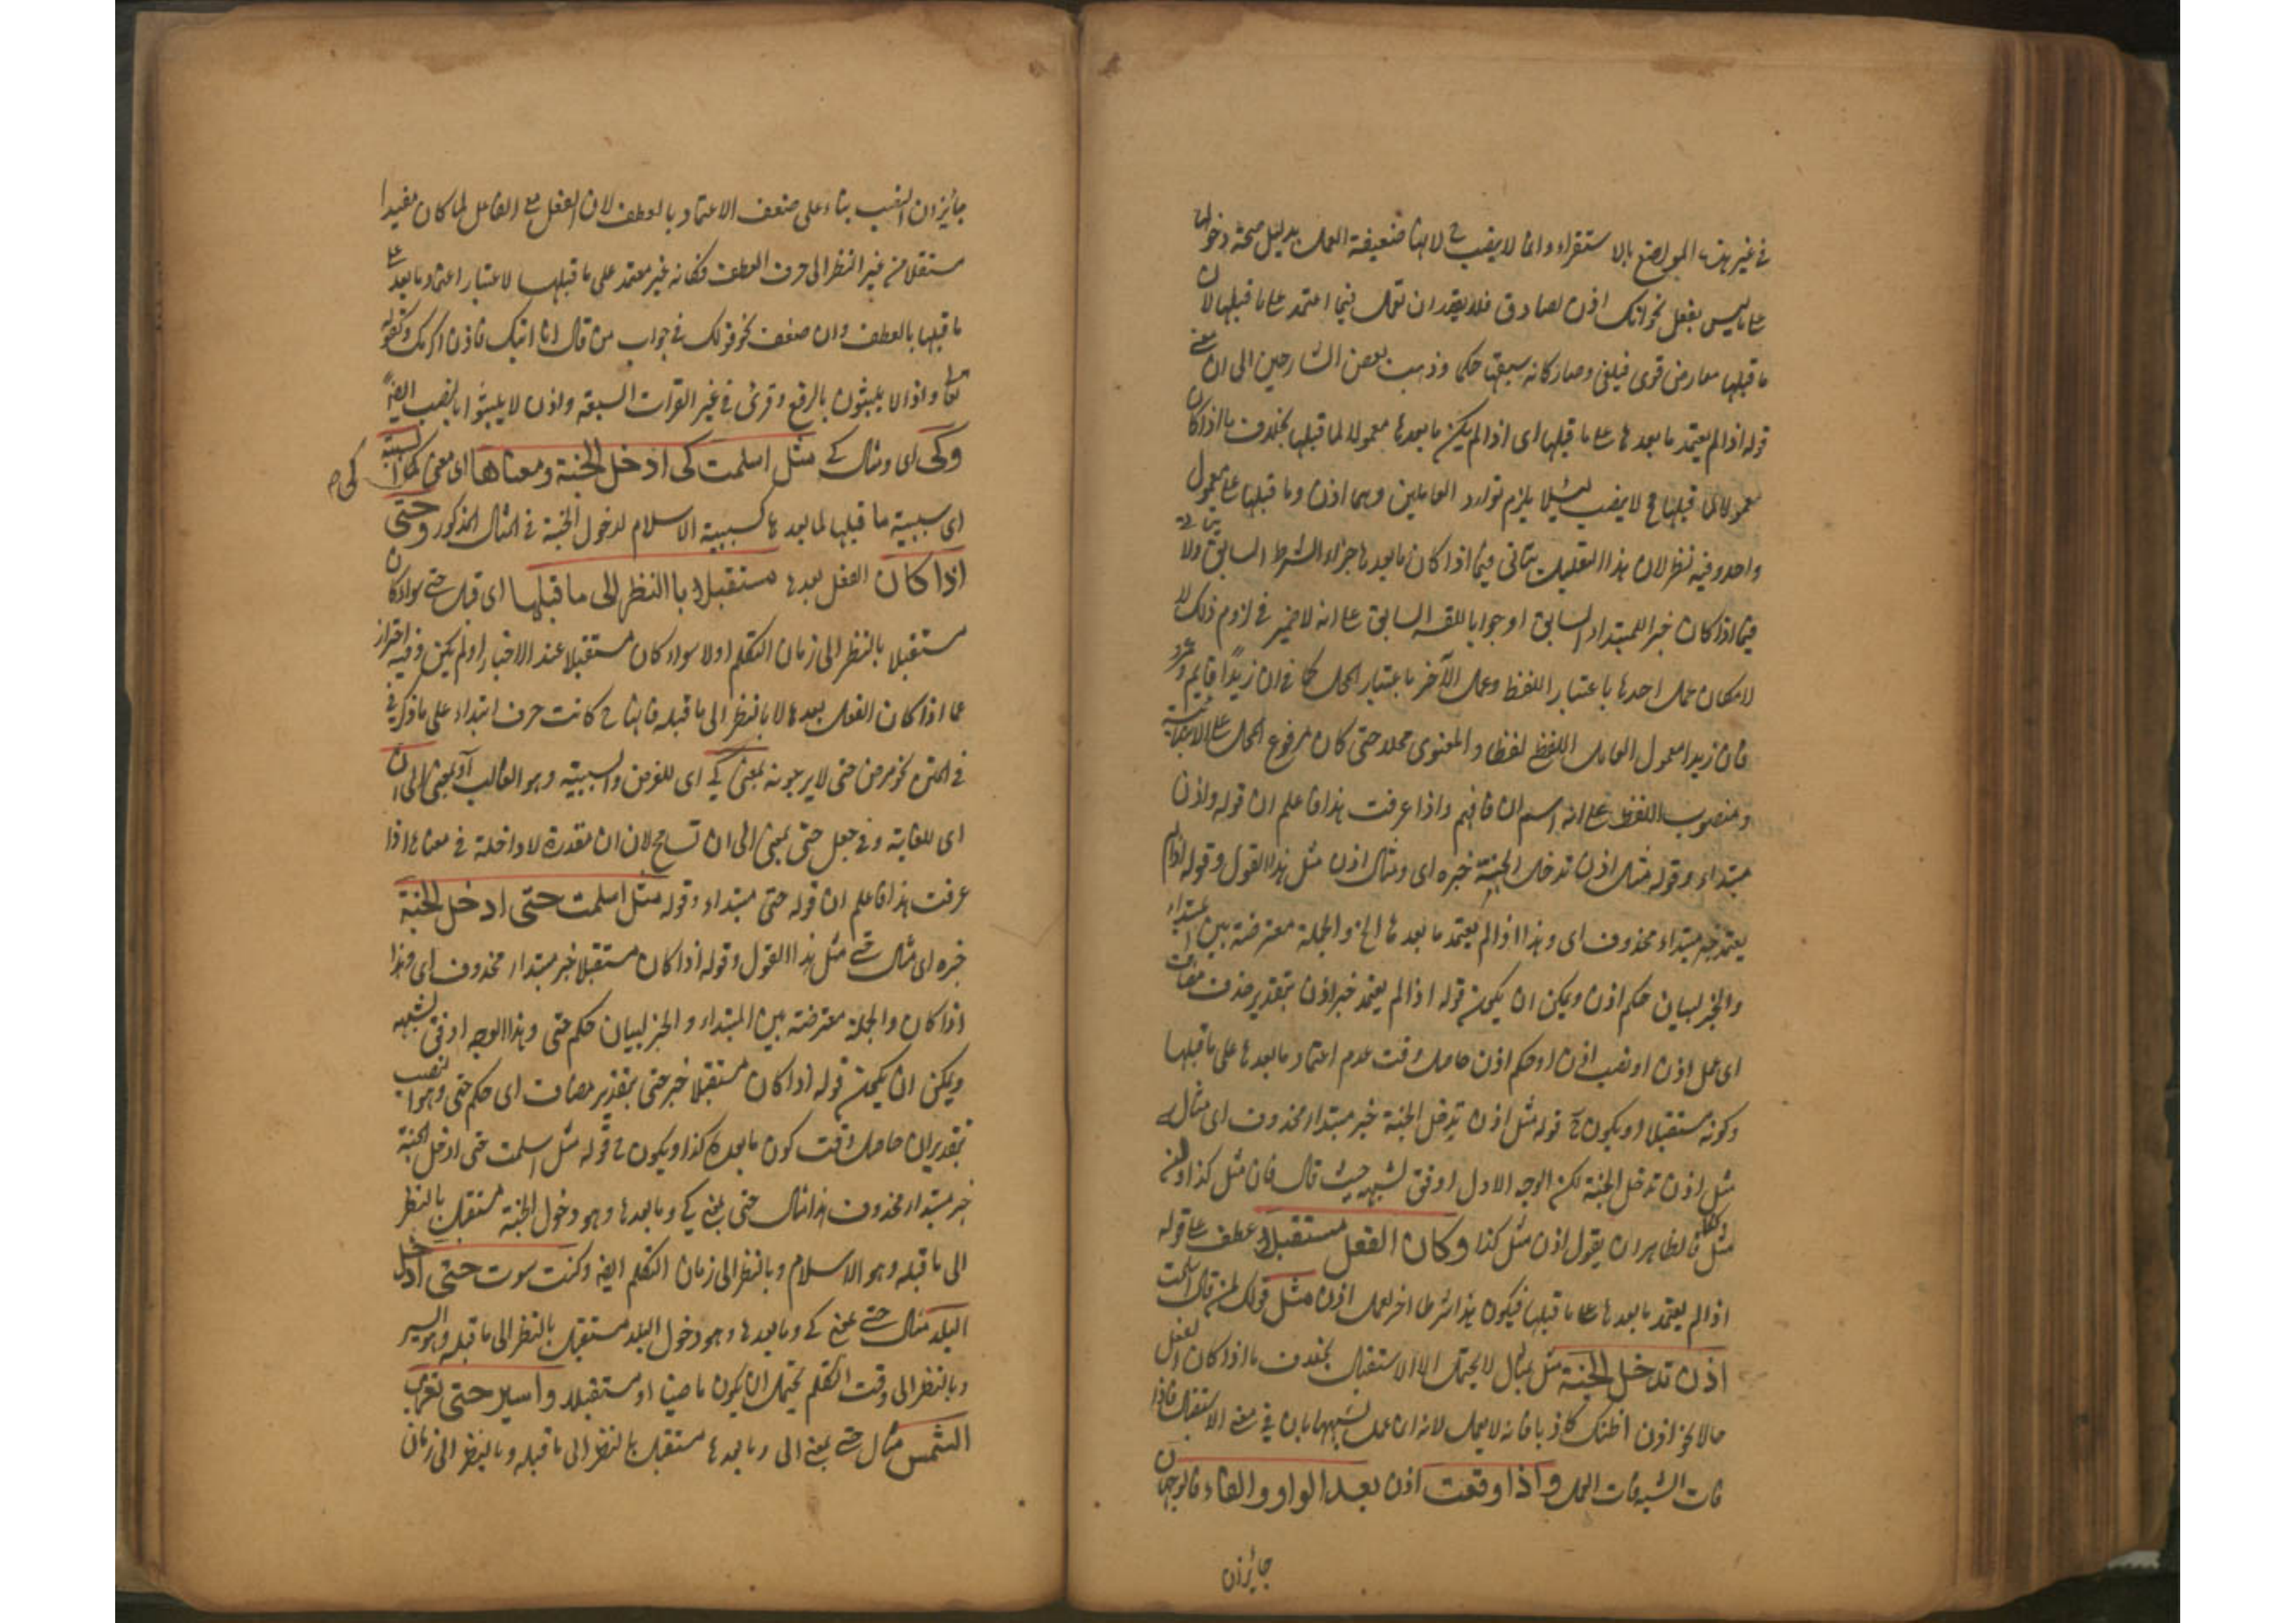 في غير هذه المواضع بالاستقراء وانما لا ينصب ح لانها ضعيفة العمل بدليل صحة دخولها
على ما ليس بفعل نحو انك اذن لصادق فلا يقدر ان تعمل فيما اعتمد على ما قبلها لان
ما قبلها معارض قوى فيلغى وصار كانه سبقها حكما وذهب بعض الشارحين الى ان معنى
قوله اذا لم يعتمد ما بعدها على ما قبلها اى اذا لم يكن ما بعدها معمولا لما قبلها بخلاف ما اذا كان
معمولا لما قبلها ح لا ينصب لئلا يلزم توارد العاملين وهما اذن وما قبلها على معمول
واحد وفيه نظر لان هذا التعليل يتأتى فيما اذا كان ما بعدها جزاء الشرط السابق ولا يتأتى
فيما اذا كان خبرا للمبتداء السابق او جوابا للقسم السابق على انه لا ضير في لزوم ذلك
لامكان عمل احدها باعتبار اللفظ وعمل الآخر باعتبار المحل كما في ان زيدًا قايم وعمرو
فان زيدا معمول العامل اللفظى لفظا والمعنوى محلا حتى كان مرفوع المحل على الابتدائية
ومنصوب اللفظ على انه اسم ان فافهم واذا عرفت هذا فاعلم ان قوله واذن
مبتداء وقوله مثل اذن تدخل الجنة خبره اى ومثال اذن مثل هذا القول وقوله اذا لم
يعتمد خبر مبتداء محذوف اى وهذا اذا لم يعتمد ما بعدها الخ والجملة معترضة بين المبتداء
والخبر لبيان حكم اذن ويمكن ان يكون قوله اذا لم يعتمد خبر اذن بتقدير حذف مضاف
اى عمل اذن او نصب اذن او حكم اذن حاصل وقت عدم اعتماد ما بعدها على ما قبلها
وكونه مستقبلا ويكون ح قوله مثل اذن تدخل الجنة خبر مبتداء محذوف اى مثاله
مثل اذن تدخل الجنة لكن الوجه الاول اوفق لشبهه حيث قال فان مثل كذا ولن
مثل كذا فالظاهر ان يقول اذن مثل كذا وكان الفعل مستقبلا عطف على قوله
اذا لم يعتمد ما بعدها على ما قبلها فيكون هذا شرطا اخر لعمل اذن مثل قولك لمن قال اسلمت
اذن تدخل الجنة مثل بمثال لا يحتمل الا الاستقبال بخلاف ما اذا كان الفعل
حالا نحو اذن اظنك كاذبا فانه لا يعمل لانه ان عمل لشبهها بان في معنى الاستقبال فاذا
فات الشبه فات العمل واذا وقعت اذن بعد الواو والفاء فالوجهان
جائزان
جائزان النصب بناء على ضعف الاعتماد بالعطف لان الفعل مع الفاعل لما كان مفيدا
مستقلا من غير النظر الى حرف العطف فكانه غير معتمد على ما قبلها لاعتبار اعتماد ما بعد على
ما قبلها بالعطف وان ضعف نحو قولك في جواب من قال انا اتيك فاذن اكرمك وكقوله
تعالى واذا لا يلبثون بالرفع وقرئ في غير القراءت السبعة واذن لا يلبثوا بالنصب ايضا
وكى اى ومثال كى مثل اسلمت كى ادخل الجنة ومعناها اى معنى كى السببية
كى ص
اى سببية ما قبلها لما بعدها كسببية الاسلام لدخول الجنة في المثال المذكور وحتى
اذا كان الفعل بعدها مستقبلا با النظر الى ما قبلها اى قبل حتى سواء كان
مستقبلا بالنظر الى زمان التكلم اولا سواء كان مستقبلا عند الاخبار او لم يكن وفيه احتراز
عما اذا كان الفعل بعدها لا بالنظر الى ما قبله فانها ح كانت حرف ابتداء على ما ذكر في
في المتن نحو مرض حتى لا يرجونه بمعنى كى اى للغرض والسببية وهو الغالب او بمعنى الى ان
اى للغاية وفي جعل حتى بمعنى الى ان تسامح لان ان مقدرة لا داخلة في معناها اذا
عرفت هذا فاعلم ان قوله حتى مبتداء وقوله مثل اسلمت حتى ادخل الجنة
خبره اى مثال حتى مثل هذا القول وقوله اذا كان مستقبلا خبر مبتداء محذوف اى وهذا
اذا كان والجملة معترضة بين المبتداء والخبر لبيان حكم حتى وهذا الوجه اوفق لشبهه
ويمكن ان يكون قوله اذا كان مستقبلا خبر حتى بتقدير مضاف اى حكم حتى وهو النصب
بتقدير ان حاصل وقت كون ما بعدها كذا ويكون ح قوله مثل اسلمت حتى ادخل الجنة
خبر مبتداء محذوف هذا مثال حتى بمعنى كى وما بعدها وهو دخول الجنة مستقبل بالنظر
الى ما قبله وهو الاسلام وبالنظر الى زمان التكلم ايضا وكنت سرت حتى ادخل
البلد مثال حتى بمعنى كى وما بعدها وهو دخول البلد مستقبل بالنظر الى ما قبله وهو السير
وبالنظر الى وقت التكلم يحتمل ان يكون ماضيا او مستقبلا واسير حتى تغرب
الشمس مثال حتى بمعنى الى وما بعدها مستقبل بالنظر الى ما قبله وبالنظر الى زمان